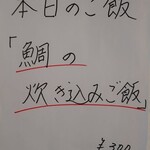 本日のご飯
「鯛の
炊き込みご飯」
¥300